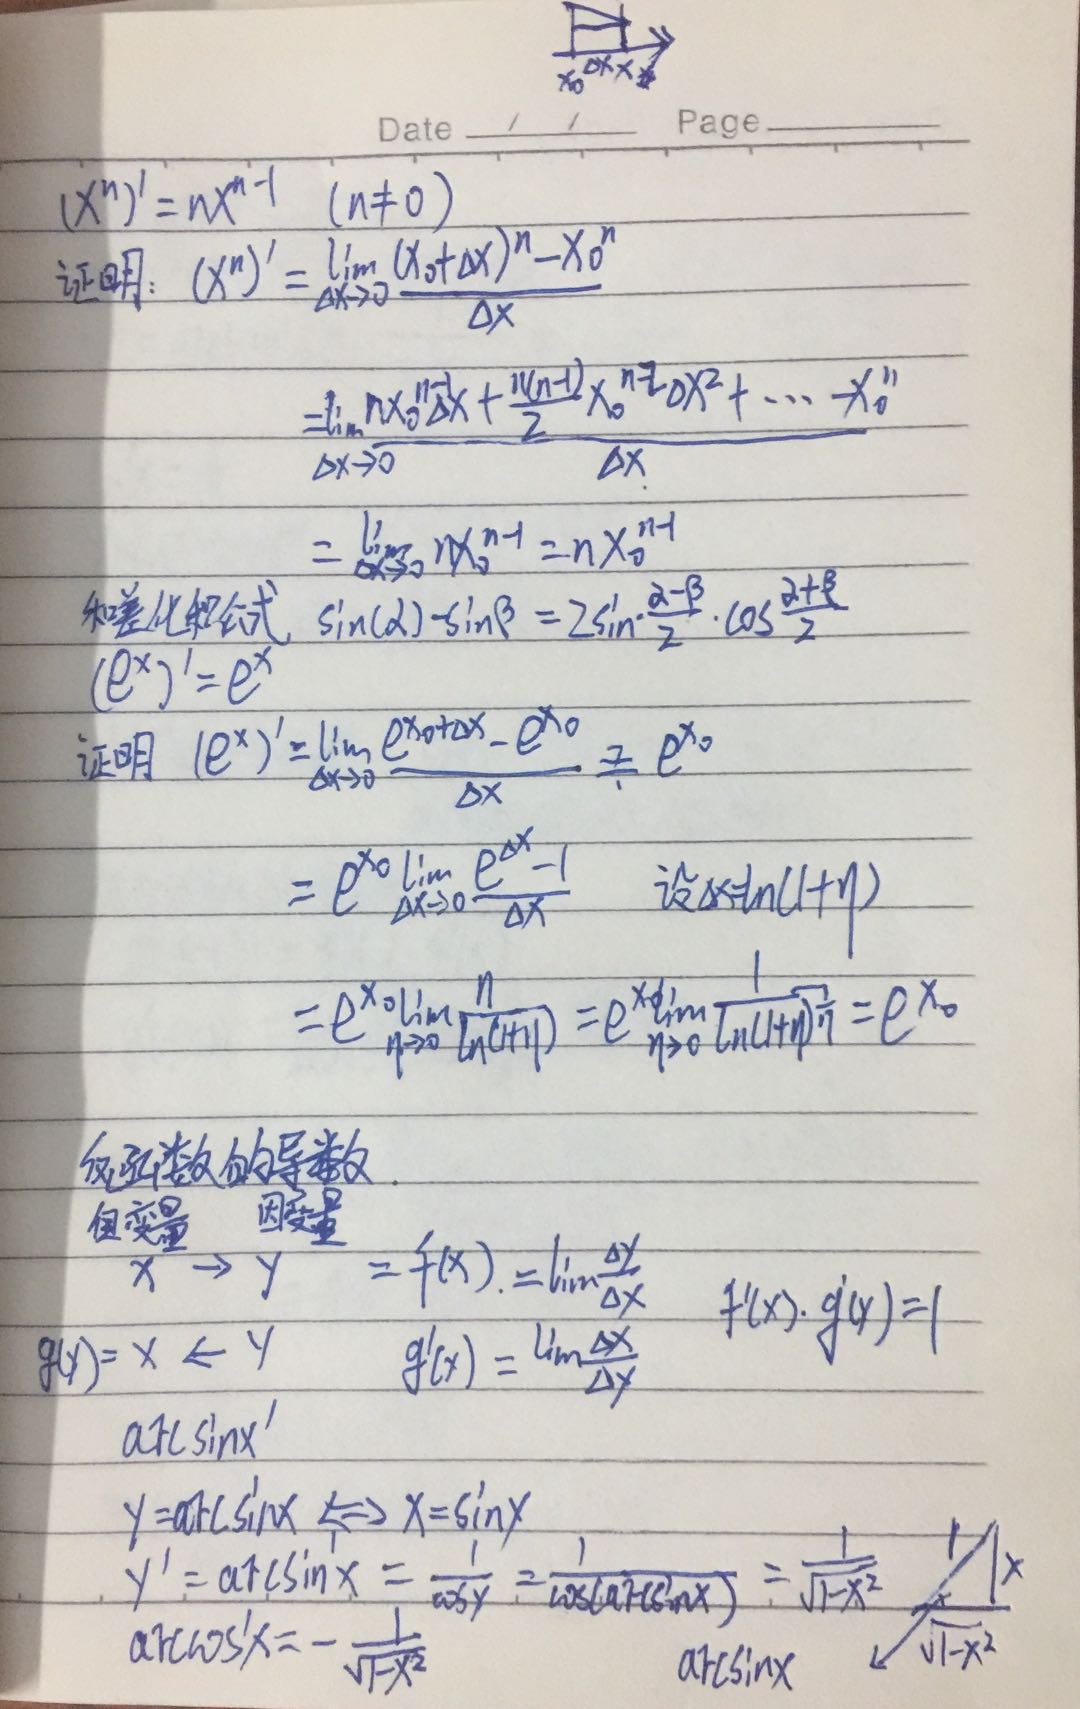 x₀ Δx x
Date / / Page
(xⁿ)' = nxⁿ⁻¹ (n≠0)
证明: (xⁿ)' = lim_{Δx→0} ((x₀+Δx)ⁿ - x₀ⁿ)/Δx
= lim_{Δx→0} (nx₀ⁿ⁻¹Δx + n(n-1)/2 x₀ⁿ⁻²Δx² + ⋯ - x₀ⁿ)/Δx
= lim_{Δx→0} nx₀ⁿ⁻¹ = nx₀ⁿ⁻¹
和差化积公式 sin(α)-sinβ = 2sin·(α-β)/2·cos (α+β)/2
(eˣ)' = eˣ
证明 (eˣ)' = lim_{Δx→0} (e^{x₀+Δx} - e^{x₀})/Δx = e^{x₀}
= e^{x₀} lim_{Δx→0} (e^{Δx}-1)/Δx 设Δx=ln(1+η)
= e^{x₀} lim_{η→0} η/ln(1+η) = e^{x₀} lim_{η→0} 1/ln(1+η)^{1/η} = e^{x₀}
反函数的导数.
自变量 因变量
x → y = f'(x). = lim Δy/Δx
f'(x)·g'(y)=1
g(y) = x ← y g'(x) = lim Δx/Δy
arcsinx'
y=arcsinx ⟺ x=siny
y' = arcsin'x = 1/cosy = 1/cos(arcsinx) = 1/√(1-x²)
1 x
√(1-x²)
arccos'x = - 1/√(1-x²)
arcsinx